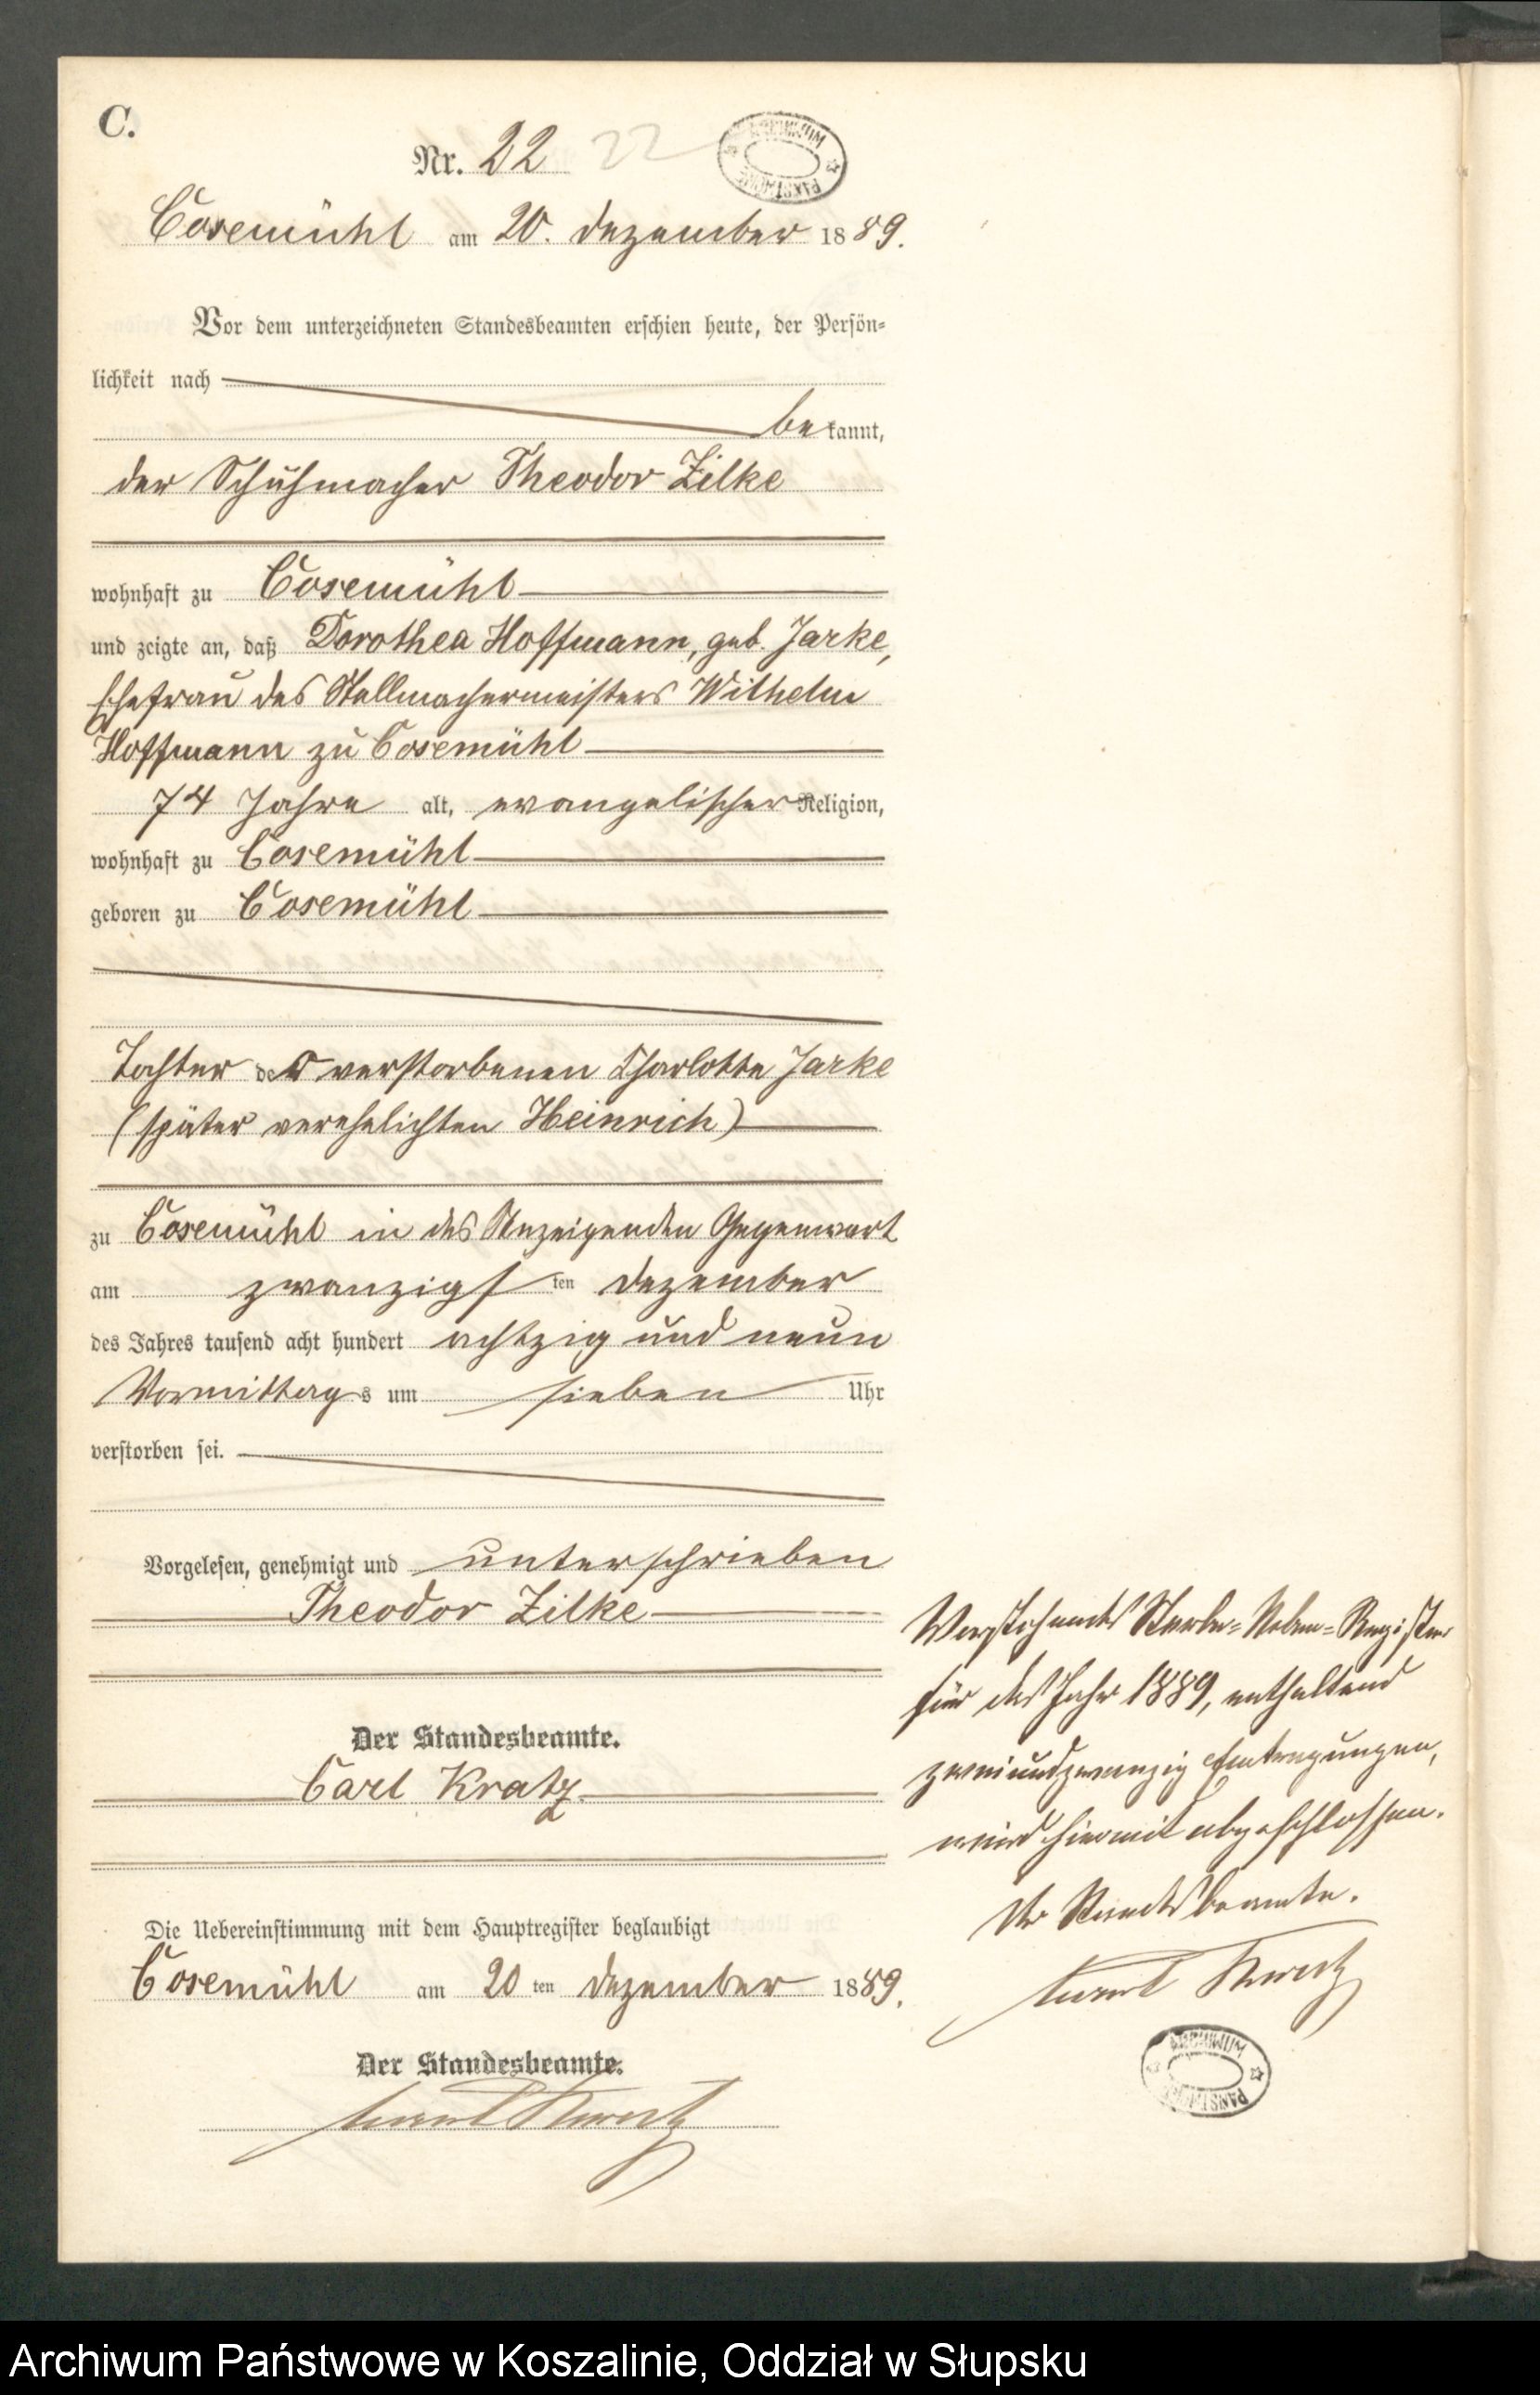 C.
Nr. 22 22
ARCHIWUM PAŃSTWOWE
Cosemühl am 20. Dezember 1889.
Vor dem unterzeichneten Standesbeamten erschien heute, der Persön-
lichkeit nach
bekannt,
der Schuhmacher Theodor Zilke
wohnhaft zu Cosemühl
und zeigte an, daß Dorothea Hoffmann, geb. Jarke,
Ehefrau des Stellmachermeisters Wilhelm
Hoffmann zu Cosemühl
74 Jahre alt, evangelischer Religion,
wohnhaft zu Cosemühl
geboren zu Cosemühl
Tochter der verstorbenen Charlotte Jarke
(später verehelichten Heinrich)
zu Cosemühl in des Anzeigenden Gegenwart
am zwanzigsten Dezember
des Jahres tausend acht hundert achtzig und neun
Vormittags um sieben Uhr
verstorben sei.
Vorgelesen, genehmigt und unterschrieben
Theodor Zilke
Der Standesbeamte.
Carl Kratz.
Die Uebereinstimmung mit dem Hauptregister beglaubigt
Cosemühl am 20ten Dezember 1889.
Der Standesbeamte.
Carl Kratz
Vorstehendes Sterbe-Neben-Register
für das Jahr 1889, enthaltend
zweiundzwanzig Eintragungen,
wird hiermit abgeschlossen.
Der Standesbeamte.
Carl Kratz
ARCHIWUM PAŃSTWOWE
Archiwum Państwowe w Koszalinie, Oddział w Słupsku